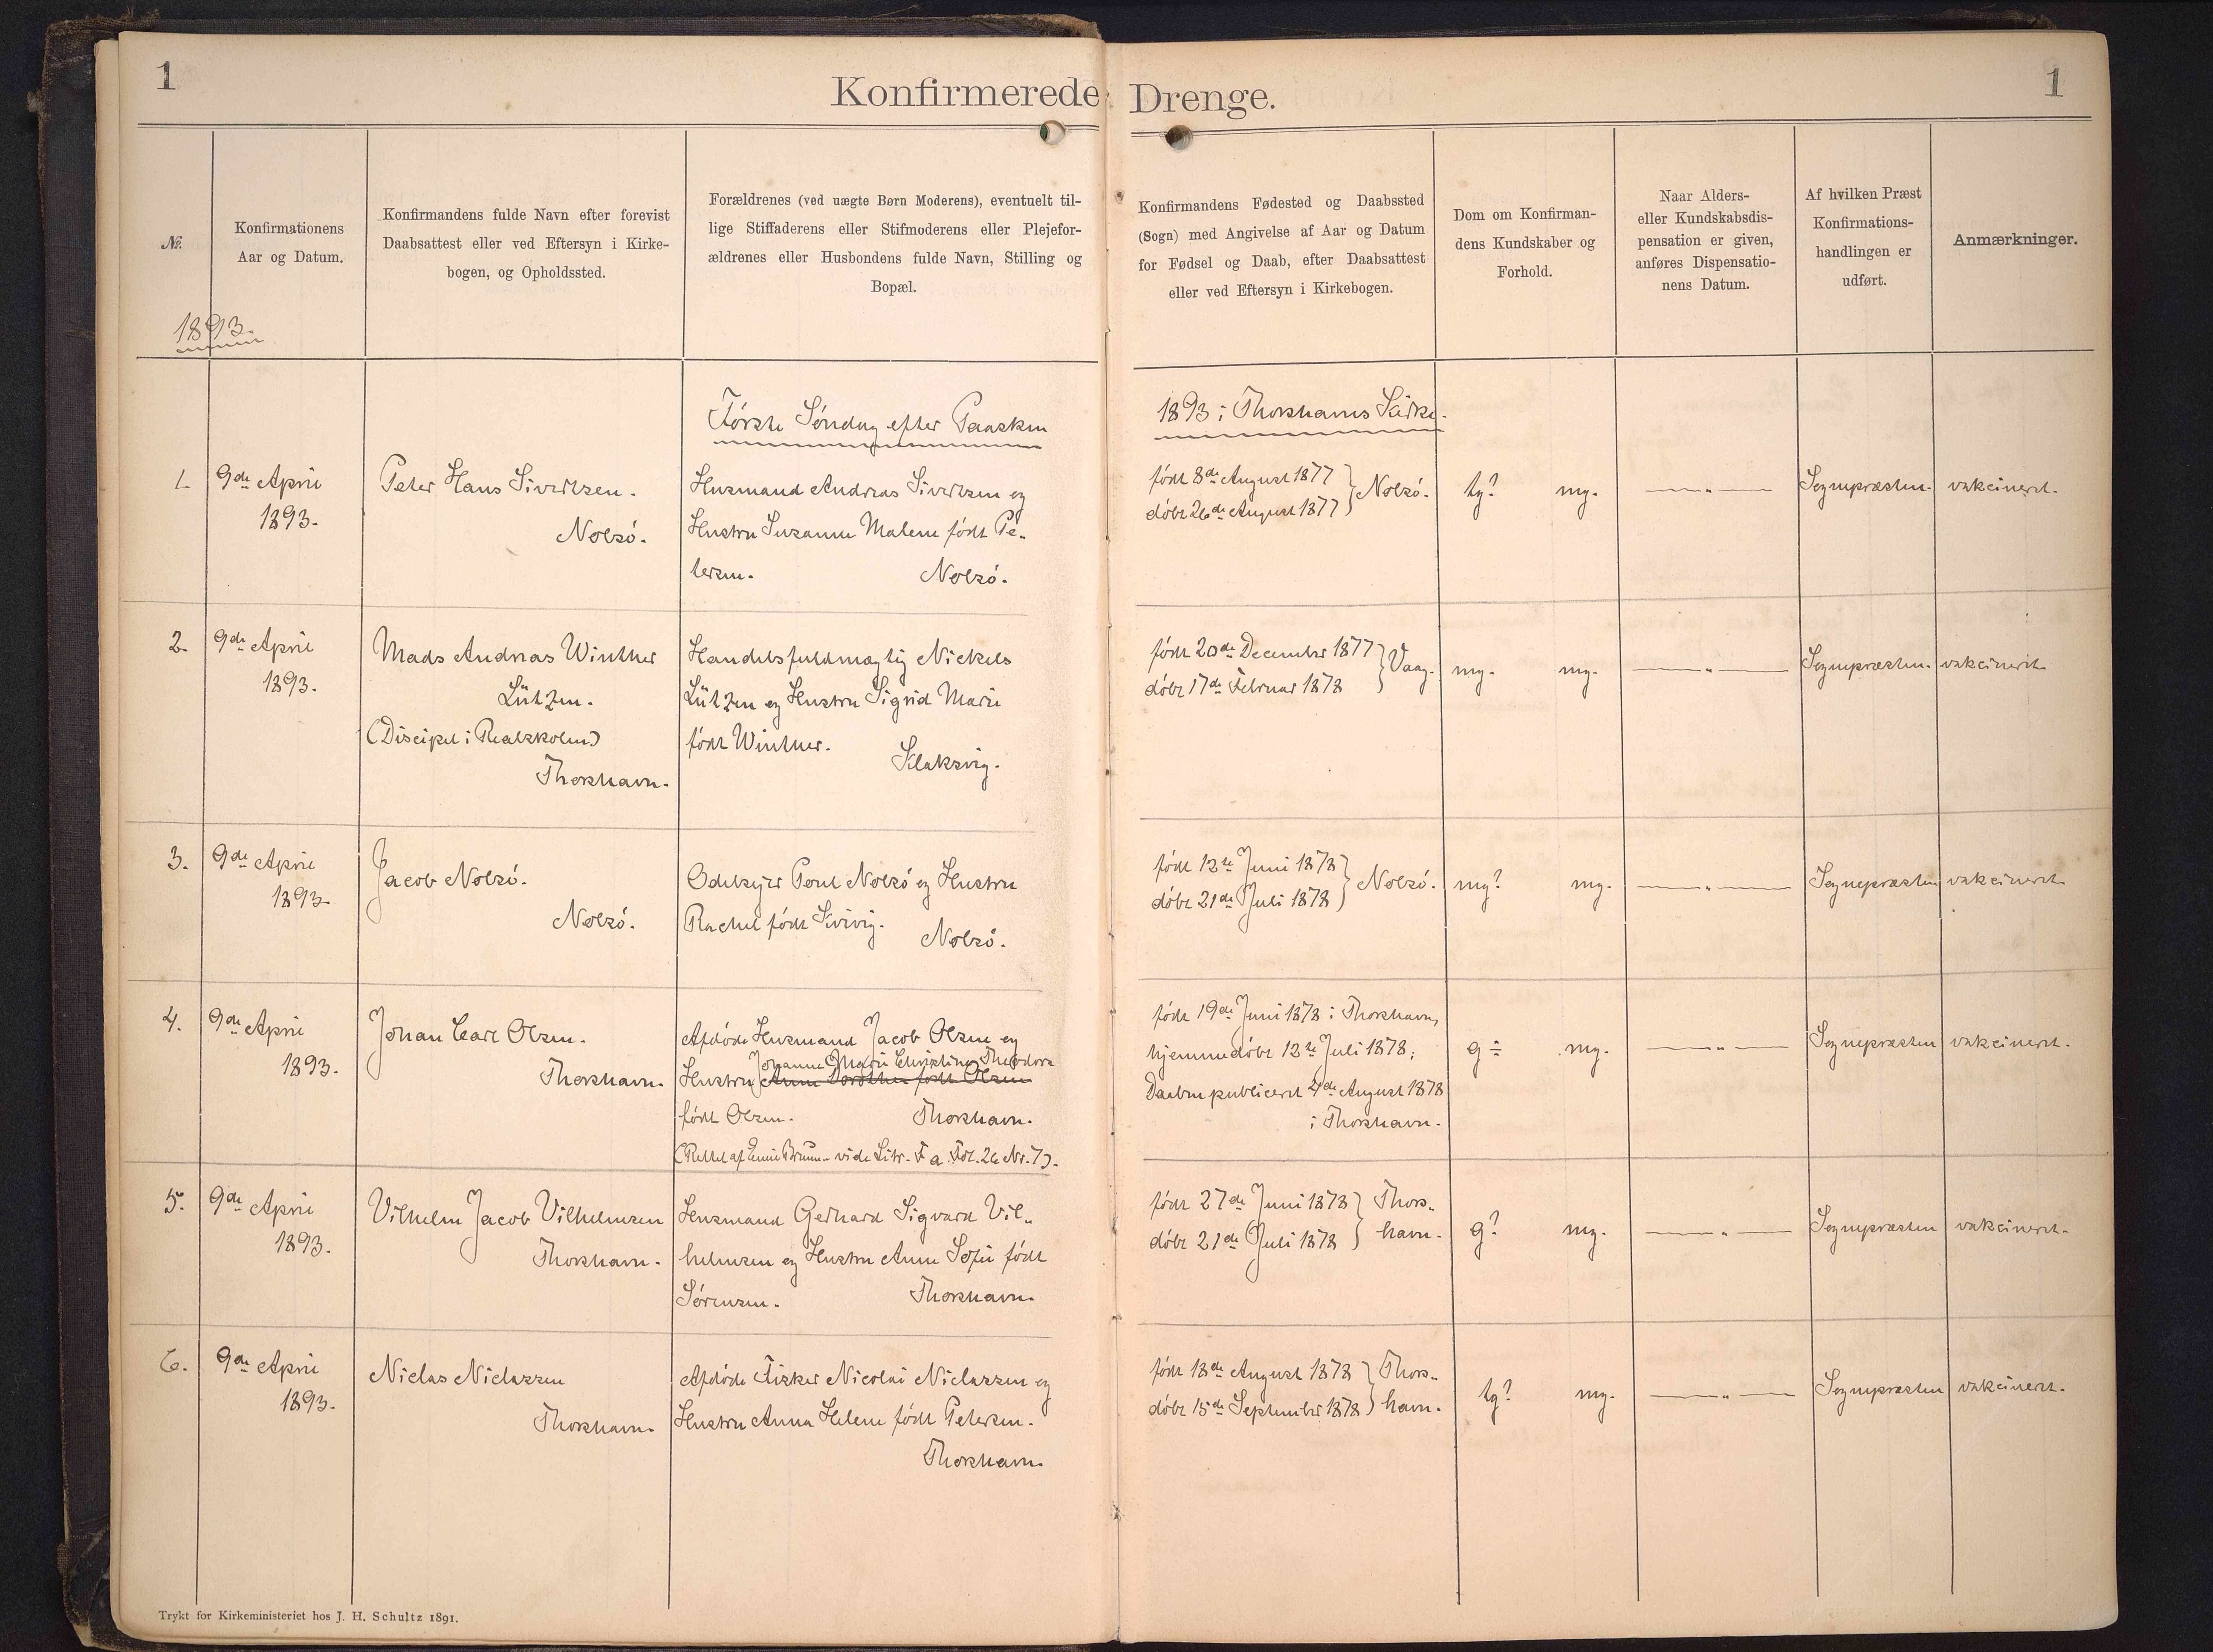 1
Konfirmerede Drenge.
1
Nr.
Konfirmationens
Aar og Datum.
Konfirmandens fulde Navn efter forevist
Daabsattest eller ved Eftersyn i Kirke-
bogen, og Opholdssted.
Forældrenes (ved uægte Børn Moderens), eventuelt til-
lige Stiffaderens eller Stifmoderens eller Plejefor-
ældrenes eller Husbondens fulde Navn, Stilling og
Bopæl.
Konfirmandens Fødested og Daabssted
(Sogn) med Angivelse af Aar og Datum
for Fødsel og Daab, efter Daabsattest
eller ved Eftersyn i Kirkebogen.
Dom om Konfirman-
dens Kundskaber og
Forhold.
Naar Alders-
eller Kundskabsdis-
pensation er given,
anføres Dispensatio-
nens Datum.
Af hvilken Præst
Konfirmations-
handlingen er
udført.
Anmærkninger.
1893.
Første Søndag efter Paasken
1893 i Thorshavns Kirke.
1.
9de April
1893.
Peter Hans Sivertsen.
Nolsø.
Husmand Andreas Sivertsen og
Hustru Susanne Malene født Pe-
tersen.
Nolsø.
født 8de August 1877
døbt 26de August 1877
Nolsø.
tg?
mg.
—„—
Sognepræsten.
vakcineret.
2.
9de April
1893.
Mads Andreas Winther
Lützen.
(Discipel i Realskolen)
Thorshavn.
Handelsfuldmægtig Nickels
Lützen og Hustru Sigrid Marie
født Winther.
Klaksvig.
født 20de December 1877
døbt 17de Februar 1878
Vaag.
mg.
mg.
—„—
Sognepræsten.
vakcineret.
3.
9de April
1893.
Jacob Nolsø.
Nolsø.
Odelsejer Poul Nolsø og Hustru
Rachel født Kvivig.
Nolsø.
født 12te Juni 1878
døbt 21de Juli 1878
Nolsø.
mg?
mg.
—„—
Sognepræsten
vakcineret.
4.
9de April
1893.
Johan Carl Olsen.
Thorshavn.
Afdøde Husmand Jacob Olsen og
Johanne Marie Christine Theodora
Hustru Anne Dorothea født Olsen
født Olsen.
Thorshavn.
(Rettet af Emil Bruun - vide Litr. Fa. Fol. 26 Nr. 7).
født 19de Juni 1878 i Thorshavn,
hjemmedøbt 12te Juli 1878;
Daaben publiceret 4de August 1878
i Thorshavn.
g ÷
mg.
—„—
Sognepræsten
vakcineret.
5.
9de April
1893.
Vilhelm Jacob Vilhelmsen
Thorshavn.
Husmand Gerhard Sigvard Vil-
helmsen og Hustru Anne Sofie født
Sørensen.
Thorshavn.
født 27de Juni 1878
døbt 21de Juli 1878
Thors-
havn.
g?
mg.
—„—
Sognepræsten
vakcineret.
6.
9de April
1893.
Niclas Niclassen
Thorshavn.
Afdøde Fisker Nicolai Niclassen og
Hustru Anna Helene født Petersen.
Thorshavn.
født 18de August 1878
døbt 15de September 1878
Thors-
havn.
tg?
mg.
—„—
Sognepræsten
vakcineret.
Trykt for Kirkeministeriet hos J. H. Schultz 1891.